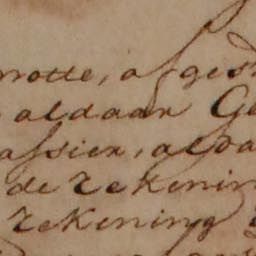 motte, afgesc
aldaar Ge
assier, alda
de rekenin
rekening